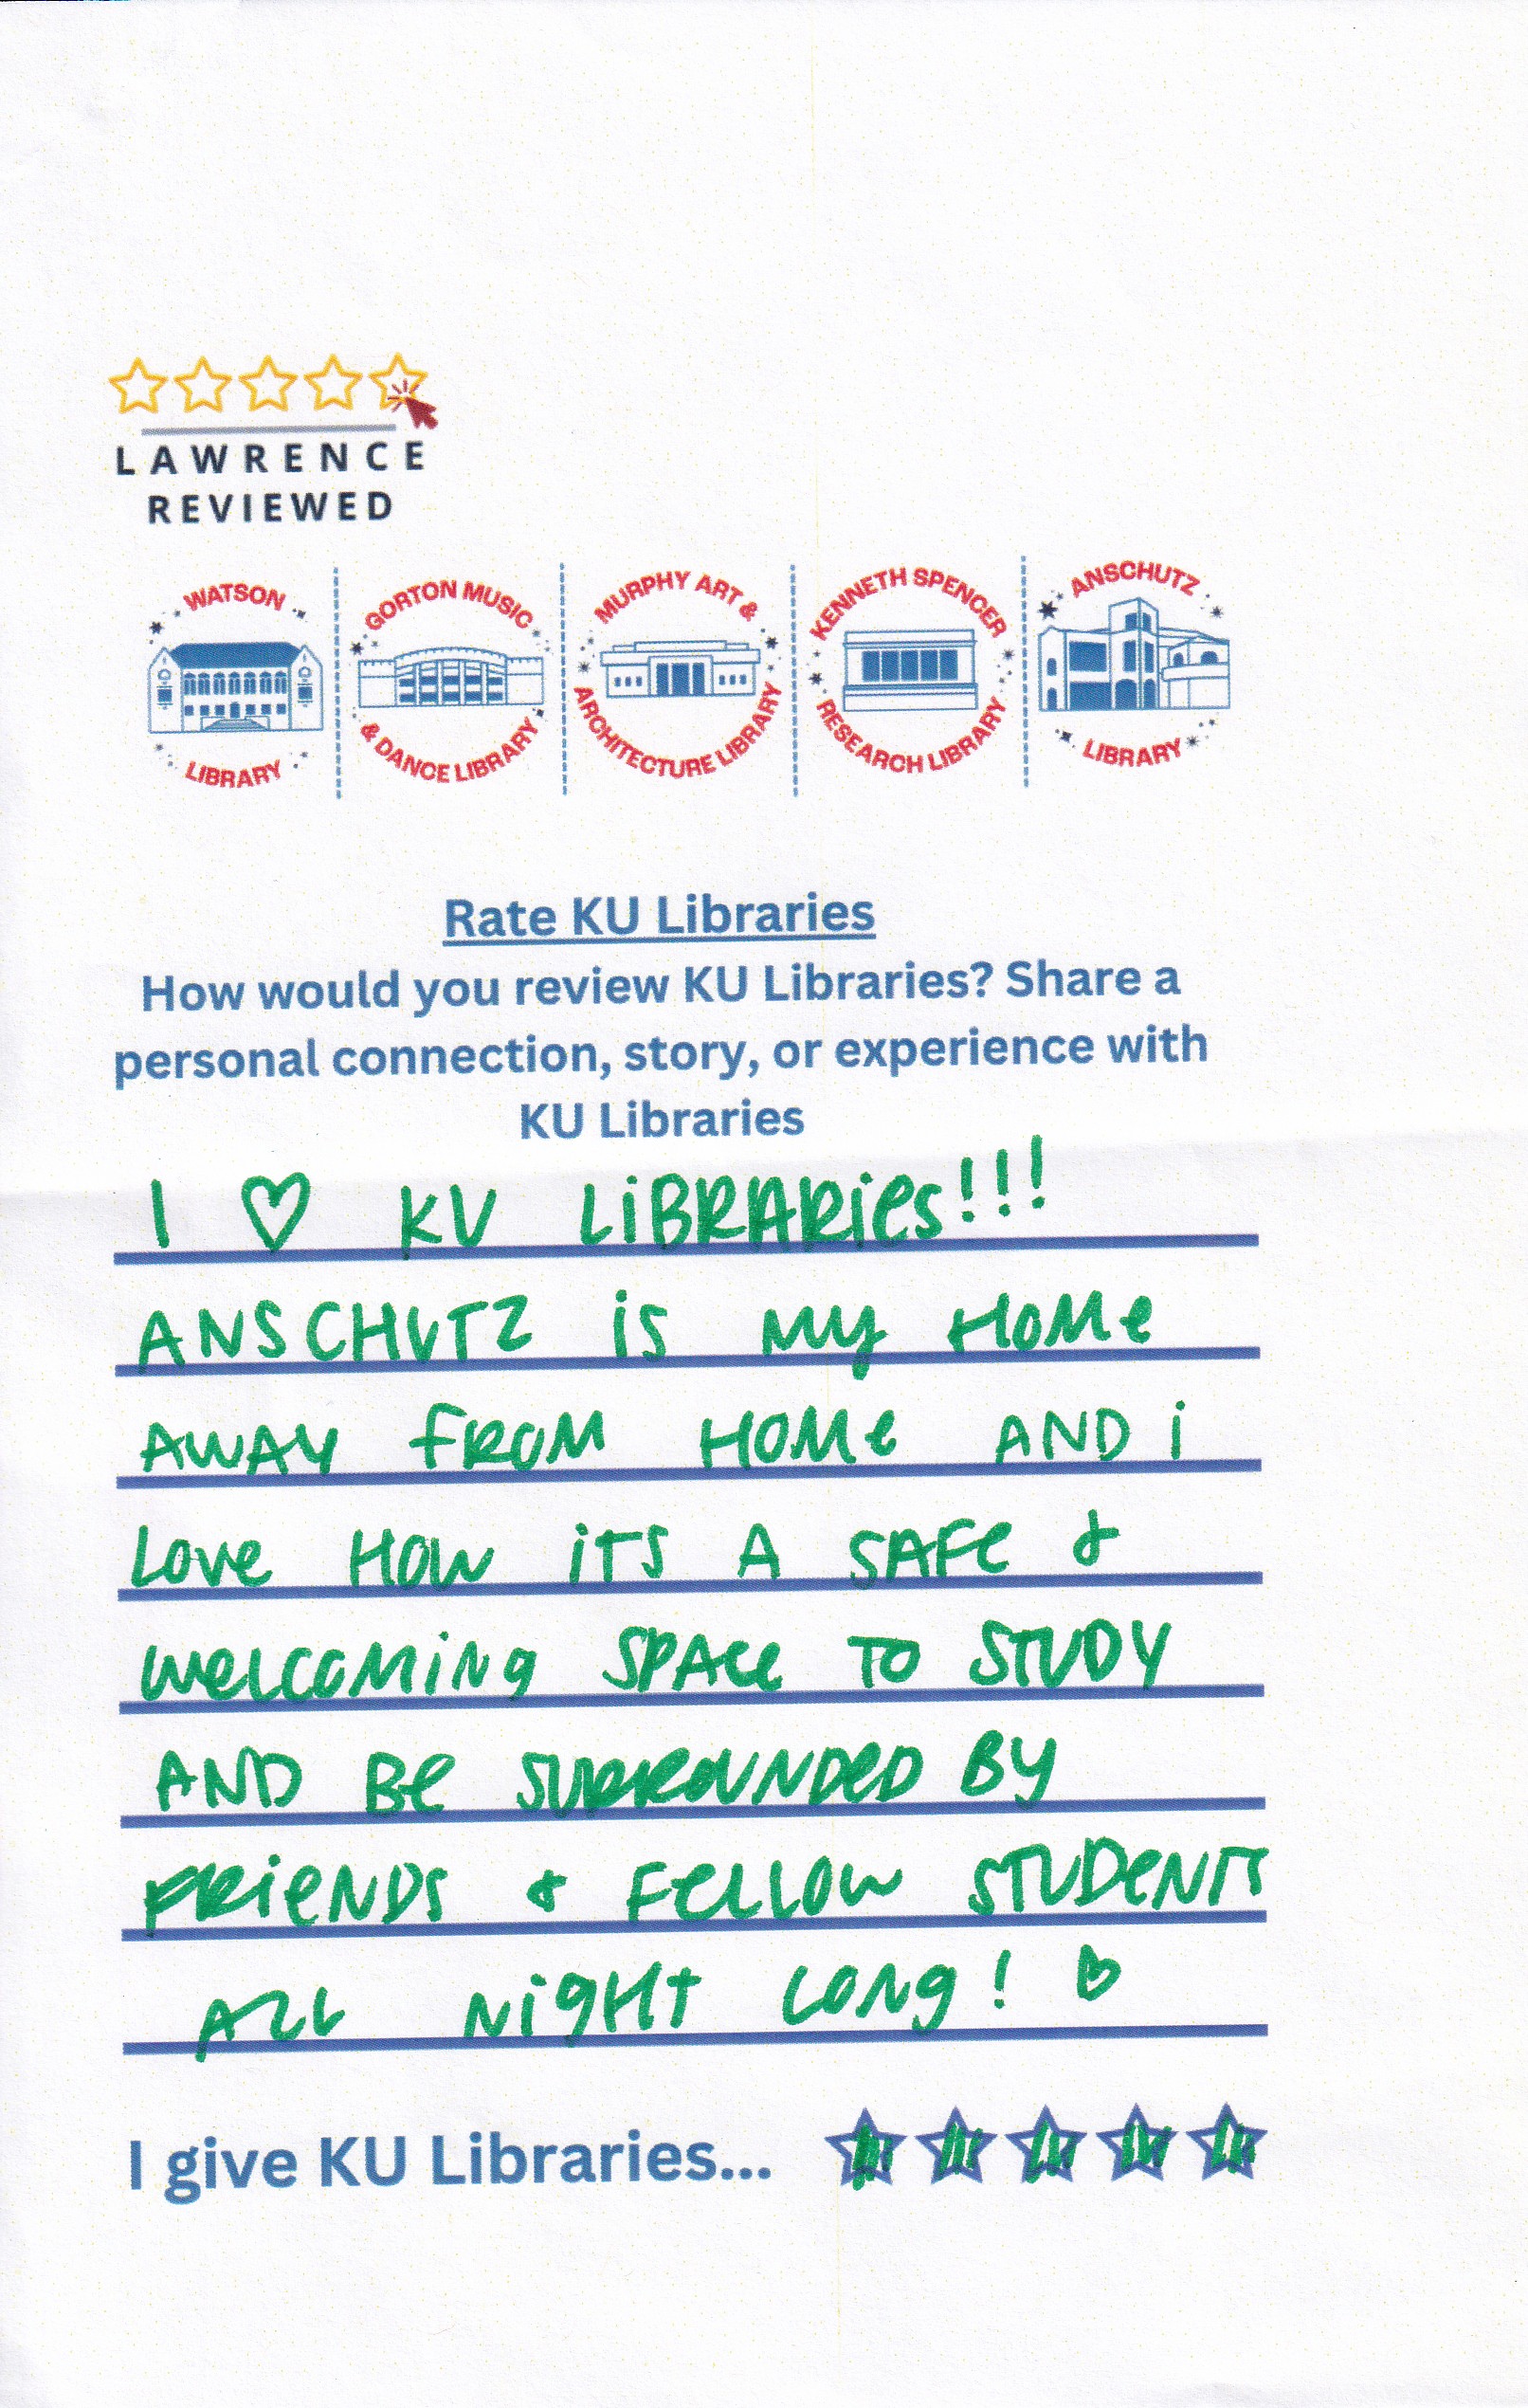 LAWRENCE
REVIEWED
WATSON
LIBRARY
GORTON MUSIC
& DANCE LIBRARY
MURPHY ART &
ARCHITECTURE LIBRARY
KENNETH SPENCER
RESEARCH LIBRARY
ANSCHUTZ
LIBRARY
Rate KU Libraries
How would you review KU Libraries? Share a
personal connection, story, or experience with
KU Libraries
I ♡ KU LiBRARies!!!
ANSCHUTZ is My HOMe
AWAY FROM HOMe AND i
Love HOW iTS A SAFe &
WeLCOMiNg SPACe TO STUDY
AND Be SURROUNDeD BY
FRieNDS & FeLLOW STUDeNTS
ALL NigHt LONg! ♡
I give KU Libraries...